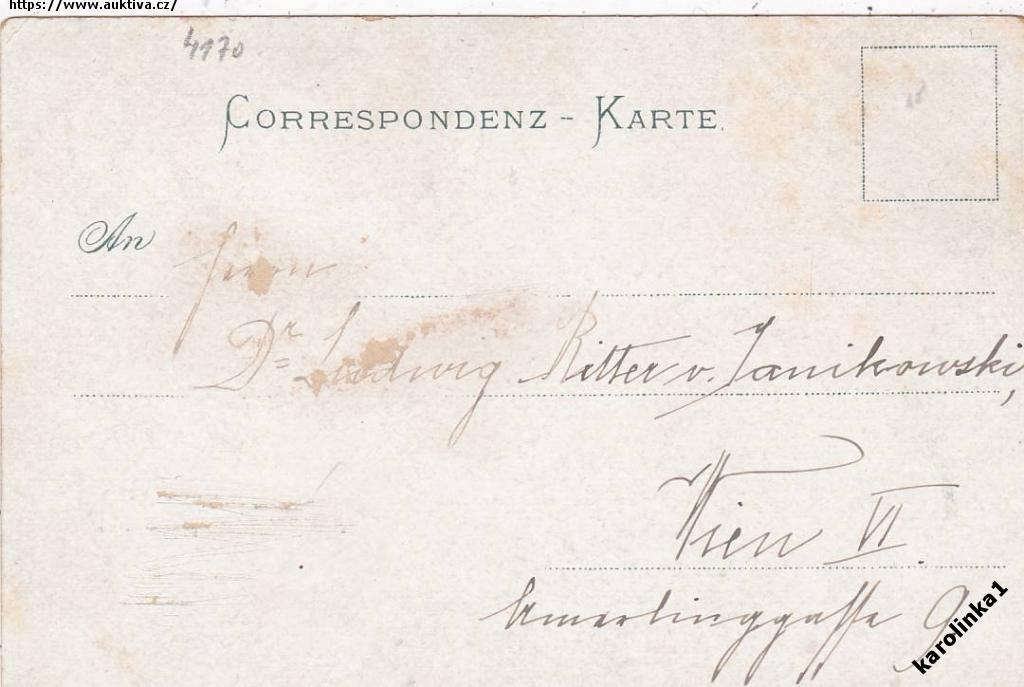 https://www.auktiva.cz/
4170
CORRESPONDENZ - KARTE.
An
Herrn
Dr Ludwig Ritter v. Janikowski,
Wien VI.
Amerlinggasse 9
karolinka1